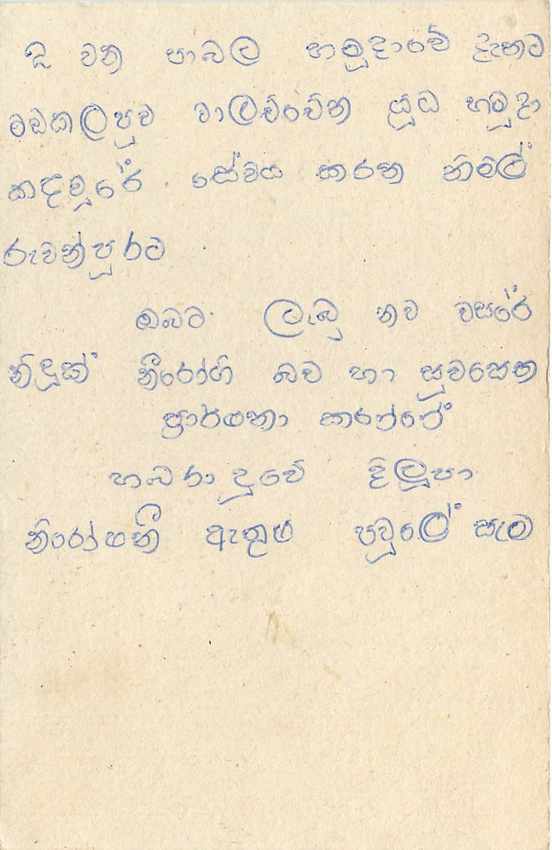 වන පාබල හමුදාවේ දැනට
මඩකලපුව වාලච්චේන යුධ හමුදා
කඳවුරේ සේවය කරන නිමල්
රුවන්පුරට
ඔබට ලැබූ නව වසරේ
නිදුක් නීරෝගි බව හා සුවසෙත
ප්‍රාර්ථනා කරන්නේ
හබරාදූවේ දිලූපා
නිරෝෂනී ඇතුළු පවුලේ සැම